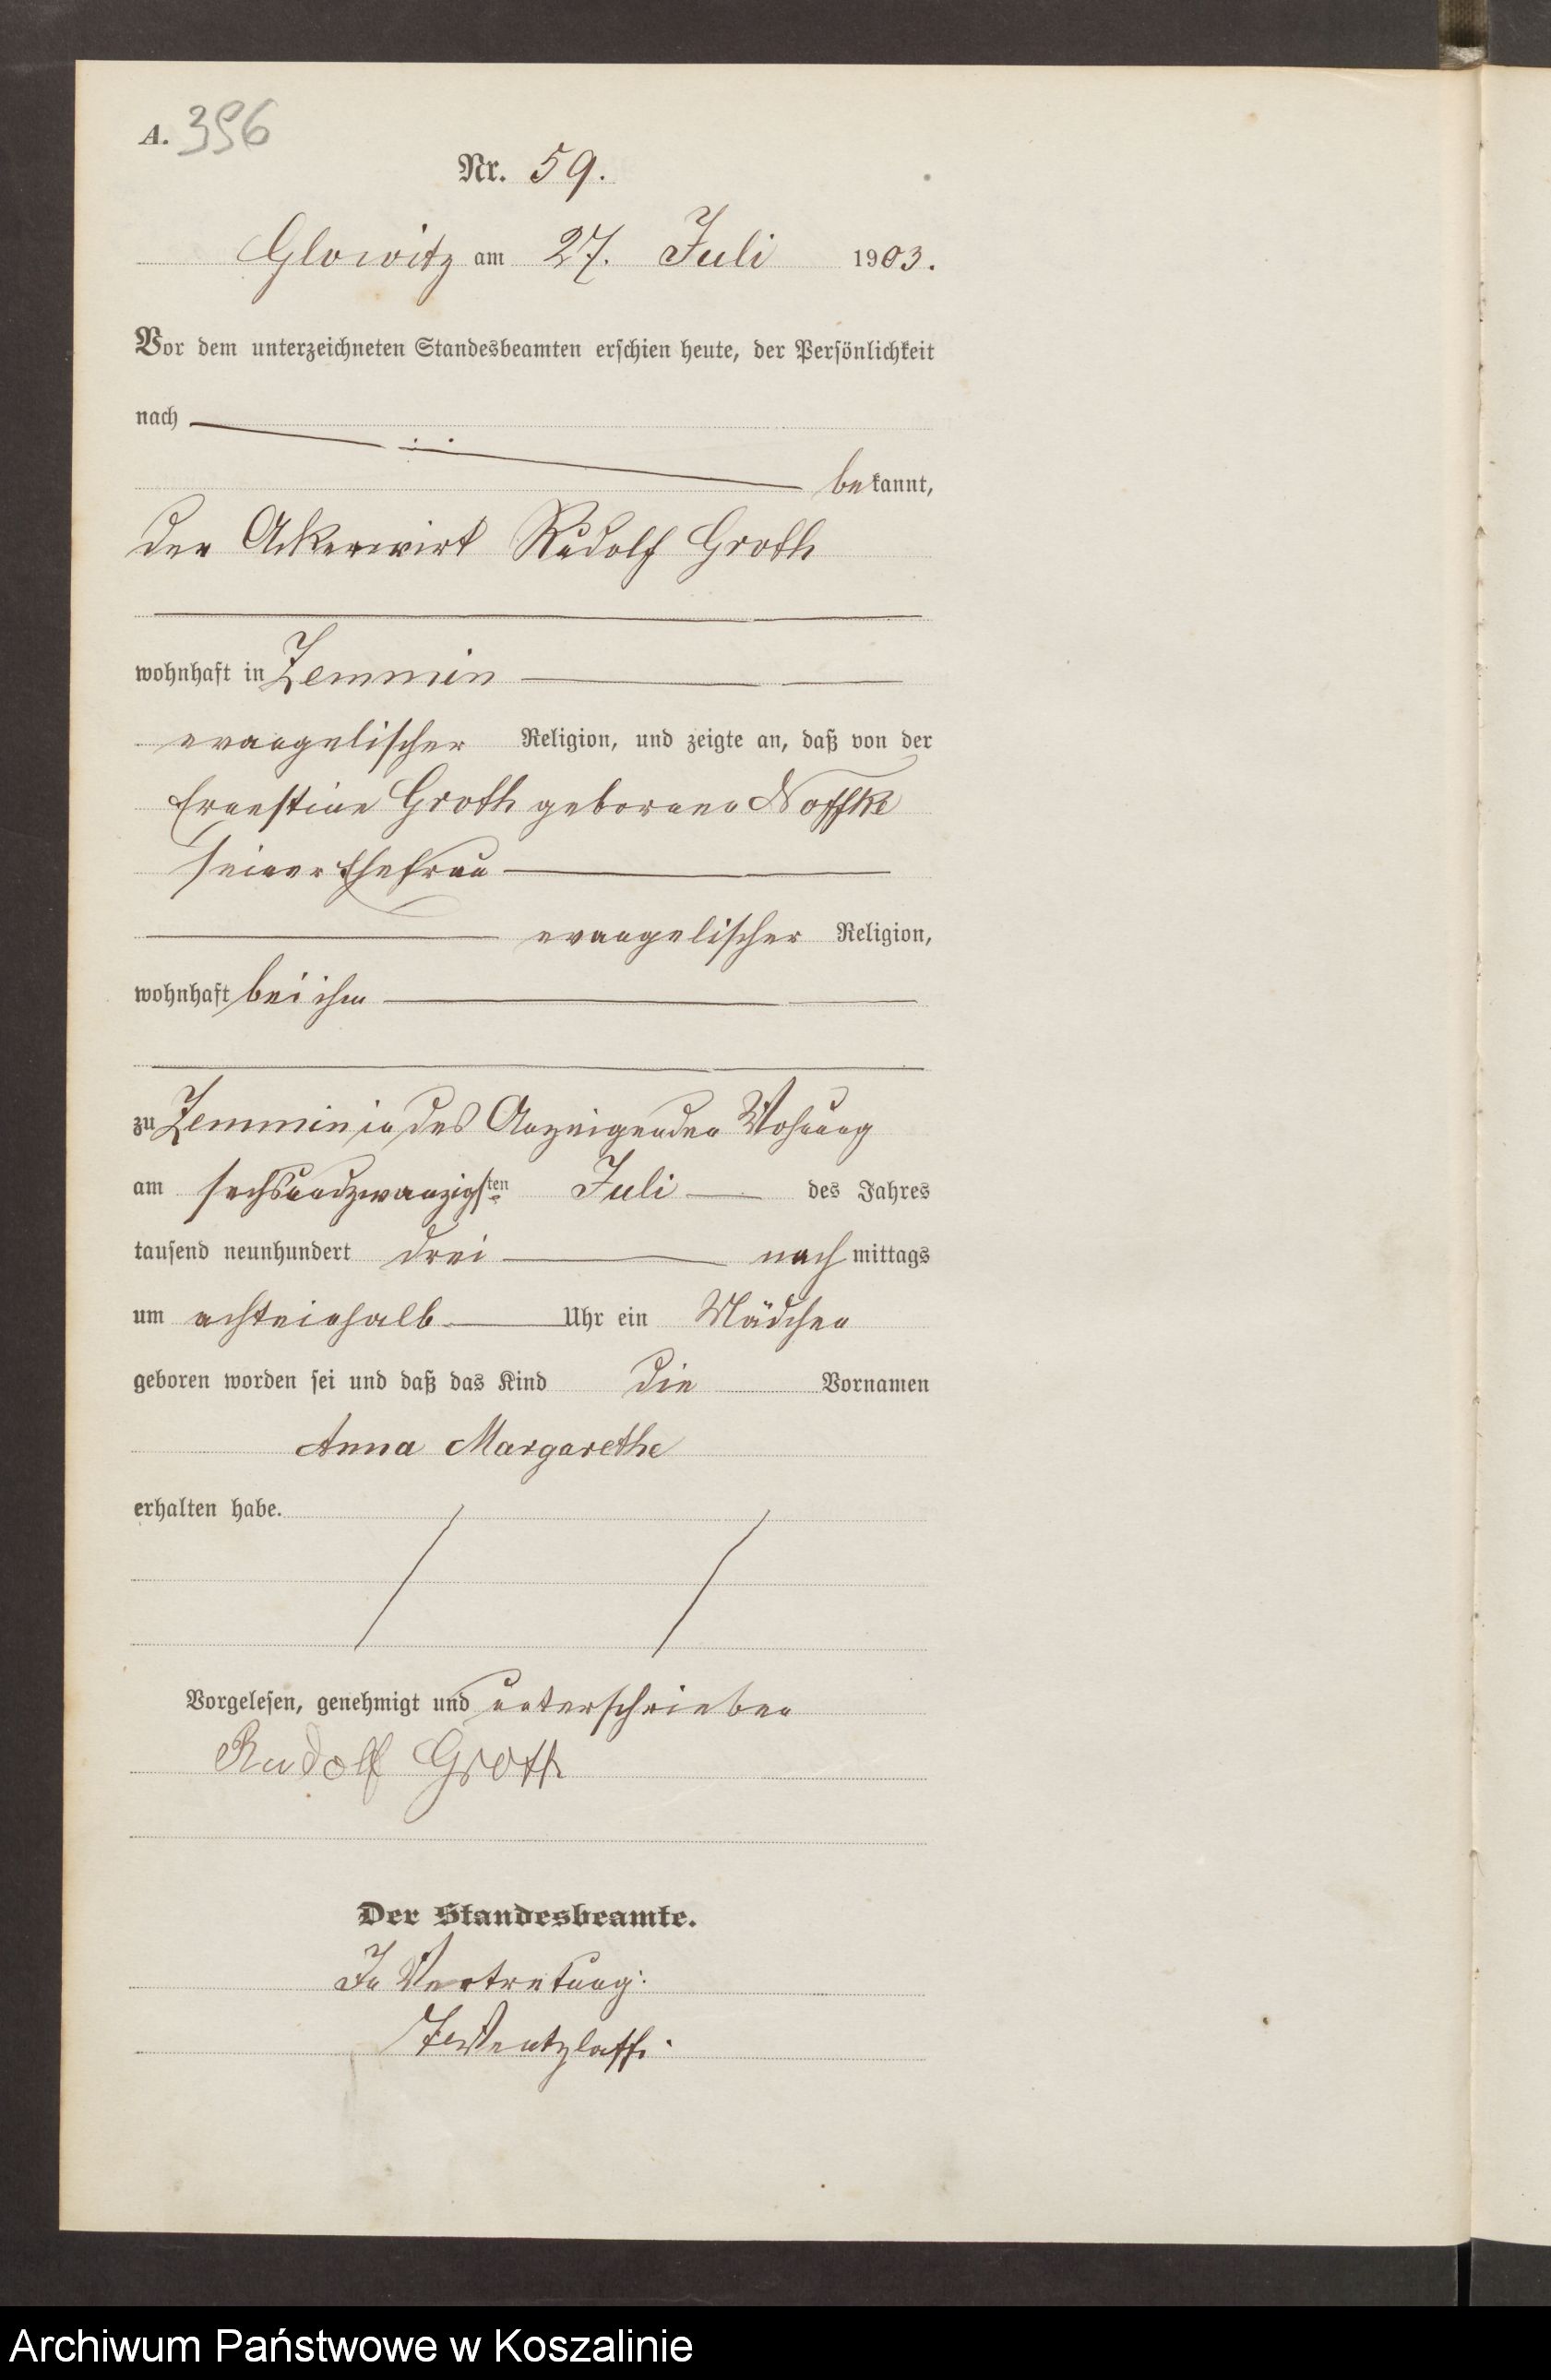 A. 396
Nr. 59.
Glowitz am 27. Juli 1903.
Vor dem unterzeichneten Standesbeamten erschien heute, der Persönlichkeit
nach
bekannt,
der Ackerwirt Rudolf Groth
wohnhaft in Zemmin
evangelischer Religion, und zeigte an, daß von der
Ernestine Groth geborene Noffke
seiner Ehefrau
evangelischer Religion,
wohnhaft bei ihm
zu Zemmin in des Anzeigenden Wohnung
am sechsundzwanzigsten Juli des Jahres
tausend neunhundert drei nachmittags
um achteinhalb Uhr ein Mädchen
geboren worden sei und daß das Kind die Vornamen
Anna Margarethe
erhalten habe.
Vorgelesen, genehmigt und unterschrieben
Rudolf Groth
Der Standesbeamte.
In Vertretung:
Archiwum Państwowe w Koszalinie